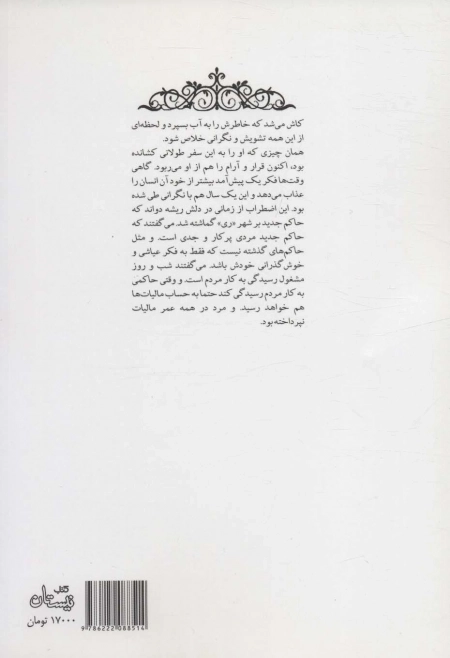 کاش می‌شد که خاطرش را به آب بسپرد و لحظه‌ای
از این همه تشویش و نگرانی خلاص شود.
همان چیزی که او را به این سفر طولانی کشانده
بود، اکنون قرار و آرام را هم از او می‌ربود. گاهی
وقت‌ها فکر یک پیش‌آمد بیشتر از خود آن انسان را
عذاب می‌دهد و این یک سال هم با نگرانی طی شده
بود. این اضطراب از زمانی در دلش ریشه دواند که
حاکم جدید بر شهر «ری» گماشته شد. می‌گفتند که
حاکم جدید مردی پرکار و جدی است. و مثل
حاکم‌های گذشته نیست که فقط به فکر عیاشی و
خوش‌گذرانی خودش باشد. می‌گفتند شب و روز
مشغول رسیدگی به کار مردم است. و وقتی حاکمی
به کار مردم رسیدگی کند حتما به حساب مالیات‌ها
هم خواهد رسید. و مرد در همه عمر مالیات
نپرداخته بود.
کتاب
نیستان
۱۷۰۰۰ تومان
9 786222 088514